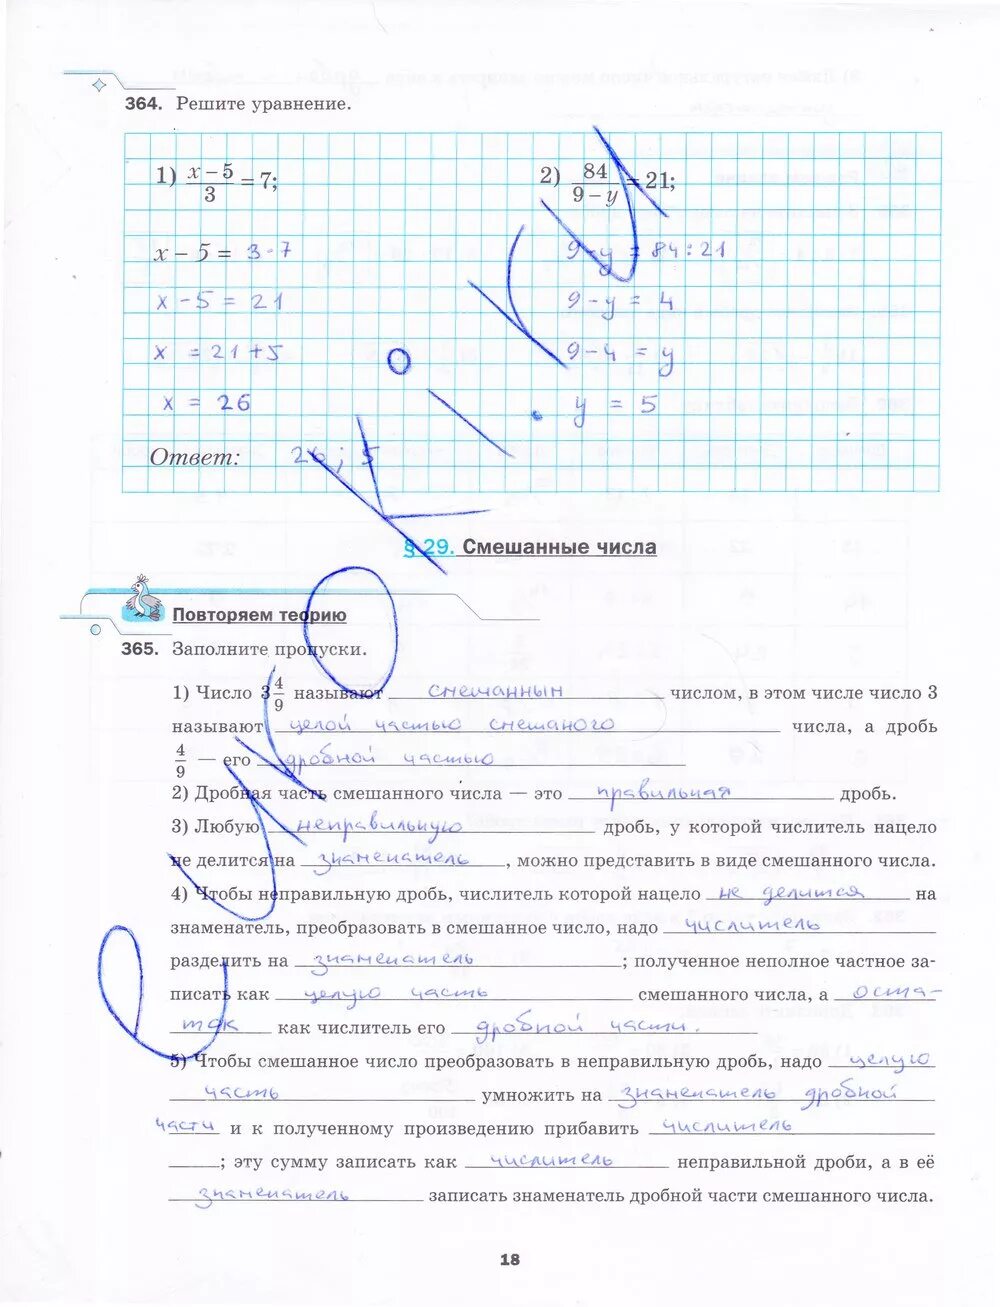 364. Решите уравнение.
1) x − 5 / 3 = 7;
2) 84 / 9 − y = 21;
x − 5 = 3·7
9 − y = 84 : 21
x − 5 = 21
9 − y = 4
x = 21 + 5
9 − 4 = y
x = 26
y = 5
Ответ: 26; 5
§ 29. Смешанные числа
Повторяем теорию
365. Заполните пропуски.
1) Число 3 4/9 называют смешанным числом, в этом числе число 3
называют целой частью смешаного числа, а дробь
4/9 — его дробной частью
2) Дробная часть смешанного числа — это правильная дробь.
3) Любую неправильную дробь, у которой числитель нацело
не делится на знаменатель, можно представить в виде смешанного числа.
4) Чтобы неправильную дробь, числитель которой нацело не делится на
знаменатель, преобразовать в смешанное число, надо числитель
разделить на знаменатель; полученное неполное частное за-
писать как целую часть смешанного числа, а оста-
ток как числитель его дробной части.
5) Чтобы смешанное число преобразовать в неправильную дробь, надо целую
часть умножить на знаменатель дробной
части и к полученному произведению прибавить числитель
; эту сумму записать как числитель неправильной дроби, а в её
знаменатель записать знаменатель дробной части смешанного числа.
18